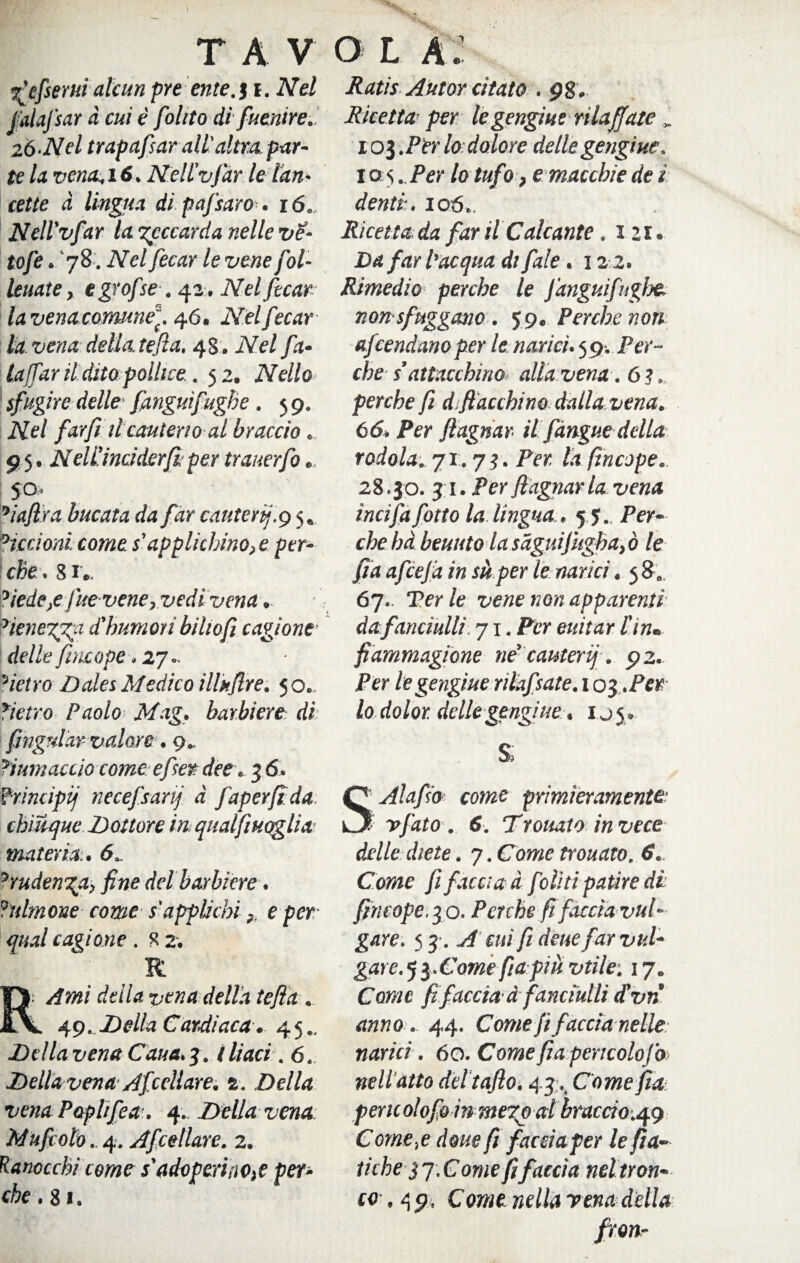 TAVOLA.
z'esserui alcun pre ente. 31. Nel
salassar à cui è solito di suenire.
26. Nel trapassar all'altra par-
te la vena. 16. Nell'vsar le lan-
cette à lingua di passaro. 16.
Nell'vsar la zeccarda nelle vẽ-
tose. 78. Nel secar le vene sol-
leuate, e grosse. 42. Nel secar
la vena comune. 46. Nel secar
la vena della testa. 48. Nel sa-
lassar il dito pollice. 52. Nello
sfugire delle sanguisughe. 59.
Nel farsi il cauterio al braccio.
95. Nell'incidersi per trauerso.
50.
Piastra bucata da far cauterij. 95.
Piccioni come s'applichino, e per-
che. 81.
Piede, e sue vene, vedi vena.
Pienezza d'humori biliosi cagione
delle sincope. 27.
Pietro Dales Medico illustre. 50.
Pietro Paolo Mag. barbiere di
singular valore. 9.
Piumaccio come esser dee. 36.
Principij necessarij à sapersi da
chiũque Dottore in qualsiuoglia
materia. 6.
Prudenza, fine del barbiere.
Pulmone come s'applichi, e per
qual cagione. 82.
R
RAmi della vena della testa.
49. Della Cardiaca. 45.
Della vena Caua. 3. Iliaci. 6.
Della vena Ascellare. 2. Della
vena Poplisea. 4. Della vena
Muscolo. 4. Ascellare. 2.
Ranocchi come s'adoperino, e per-
che. 81.
Ratis Autor citato. 98.
Ricetta per le gengiue rilassate
103. Per lo dolore delle gengiue.
105. Per lo tufo, e macchie de i
denti. 106.
Ricetta da far il Calcante. 121.
Da far l'acqua di sale. 122.
Rimedio perche le sanguisughe
non sfuggano. 59. Perche non
ascendano per le narici. 59. Per-
che s'attacchino alla vena. 63.
perche si distacchino dalla vena.
66. Per stagnar il sangue della
rodola. 71. 73. Per la sincope.
28. 30. 31. Per stagnar la vena
incisa sotto la lingua. 55. Per-
che hà beuuto la sãguisugha, ò le
sia ascesa in sù per le narici. 58.
67. Per le vene non apparenti
da fanciulli. 71. Per euitar l'in-
fiammagione ne' cauterij. 92.
Per le gengiue rilassate. 103. Per
lo dolor delle gengiue. 105.
S
SAlasso come primieramente
vsato. 6. Trouato in vece
delle diete. 7. Come trouato. 6.
Come si faccia à soliti patire di
sincope. 30. Perche si faccia vul-
gare. 53. A cui si deue far vul-
gare. 53. Come sia più vtile. 17.
Come si faccia à fanciulli d'vn
anno. 44. Come si faccia nelle
narici. 60. Come sia pericoloso
nell'atto del tasto. 43. Come sia
pericoloso in mezo al braccio. 49
Come, e doue si faccia per le sia-
tiche 37. Come si faccia nel tron-
co. 49. Come nella vena della
fron-